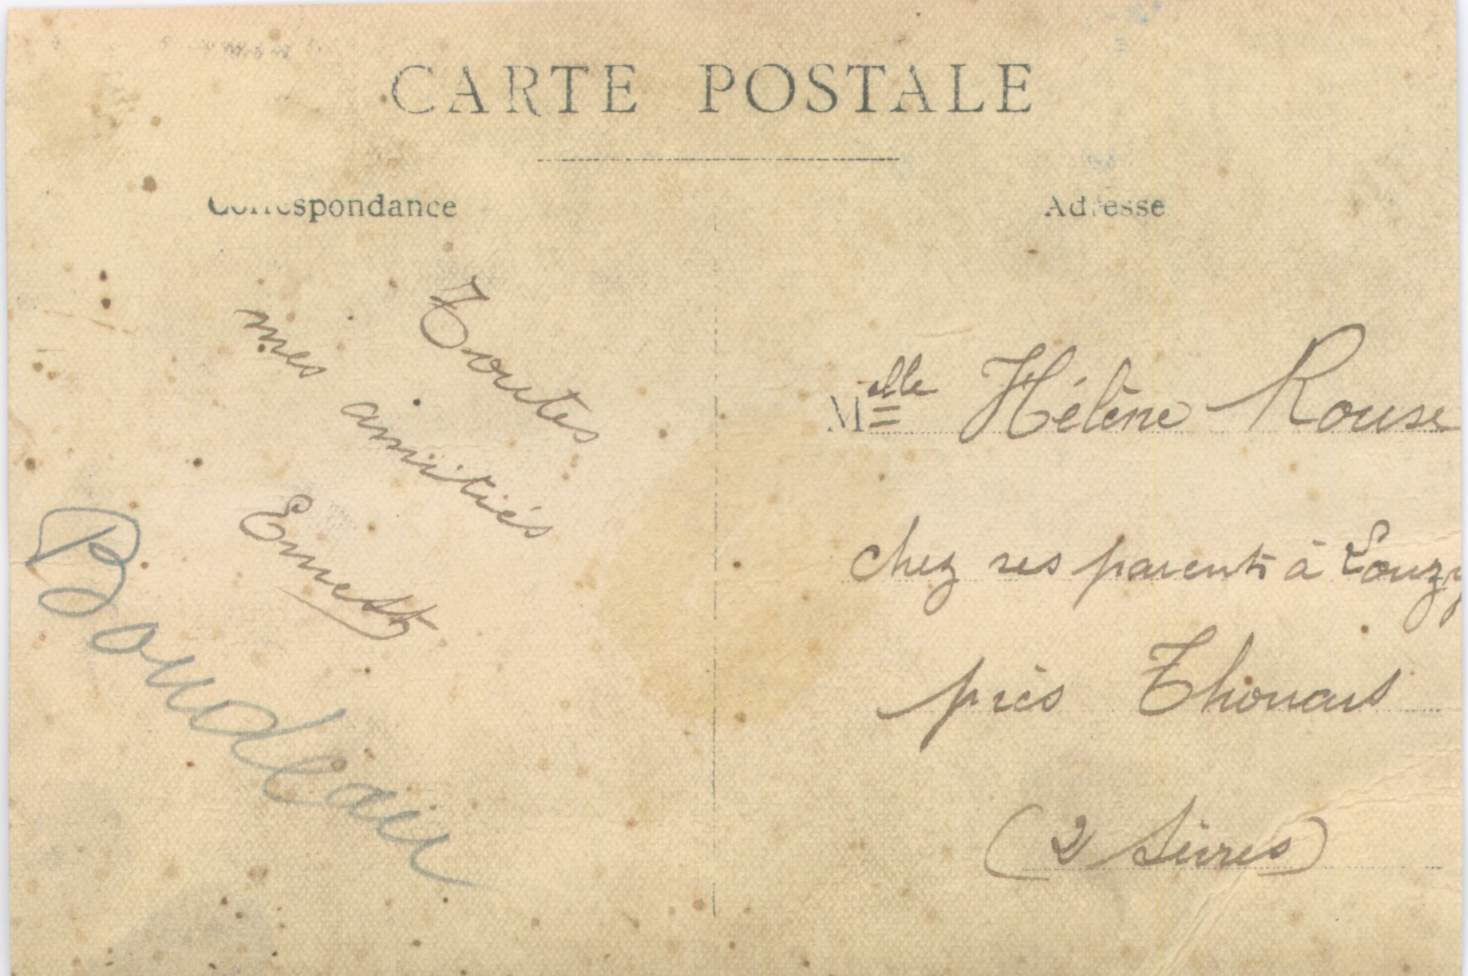 CARTE POSTALE
Correspondance
Adresse
Toutes
mes amitiés
Ernest
Boudeau
Melle Hélène Rouse
chez ses parents à Louzy
près Thouars
(2 Sèvres)